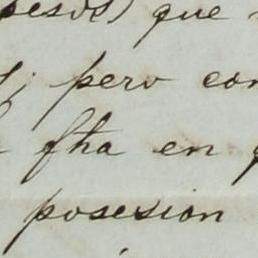 pesos) que
; pero con
fha en
posesion